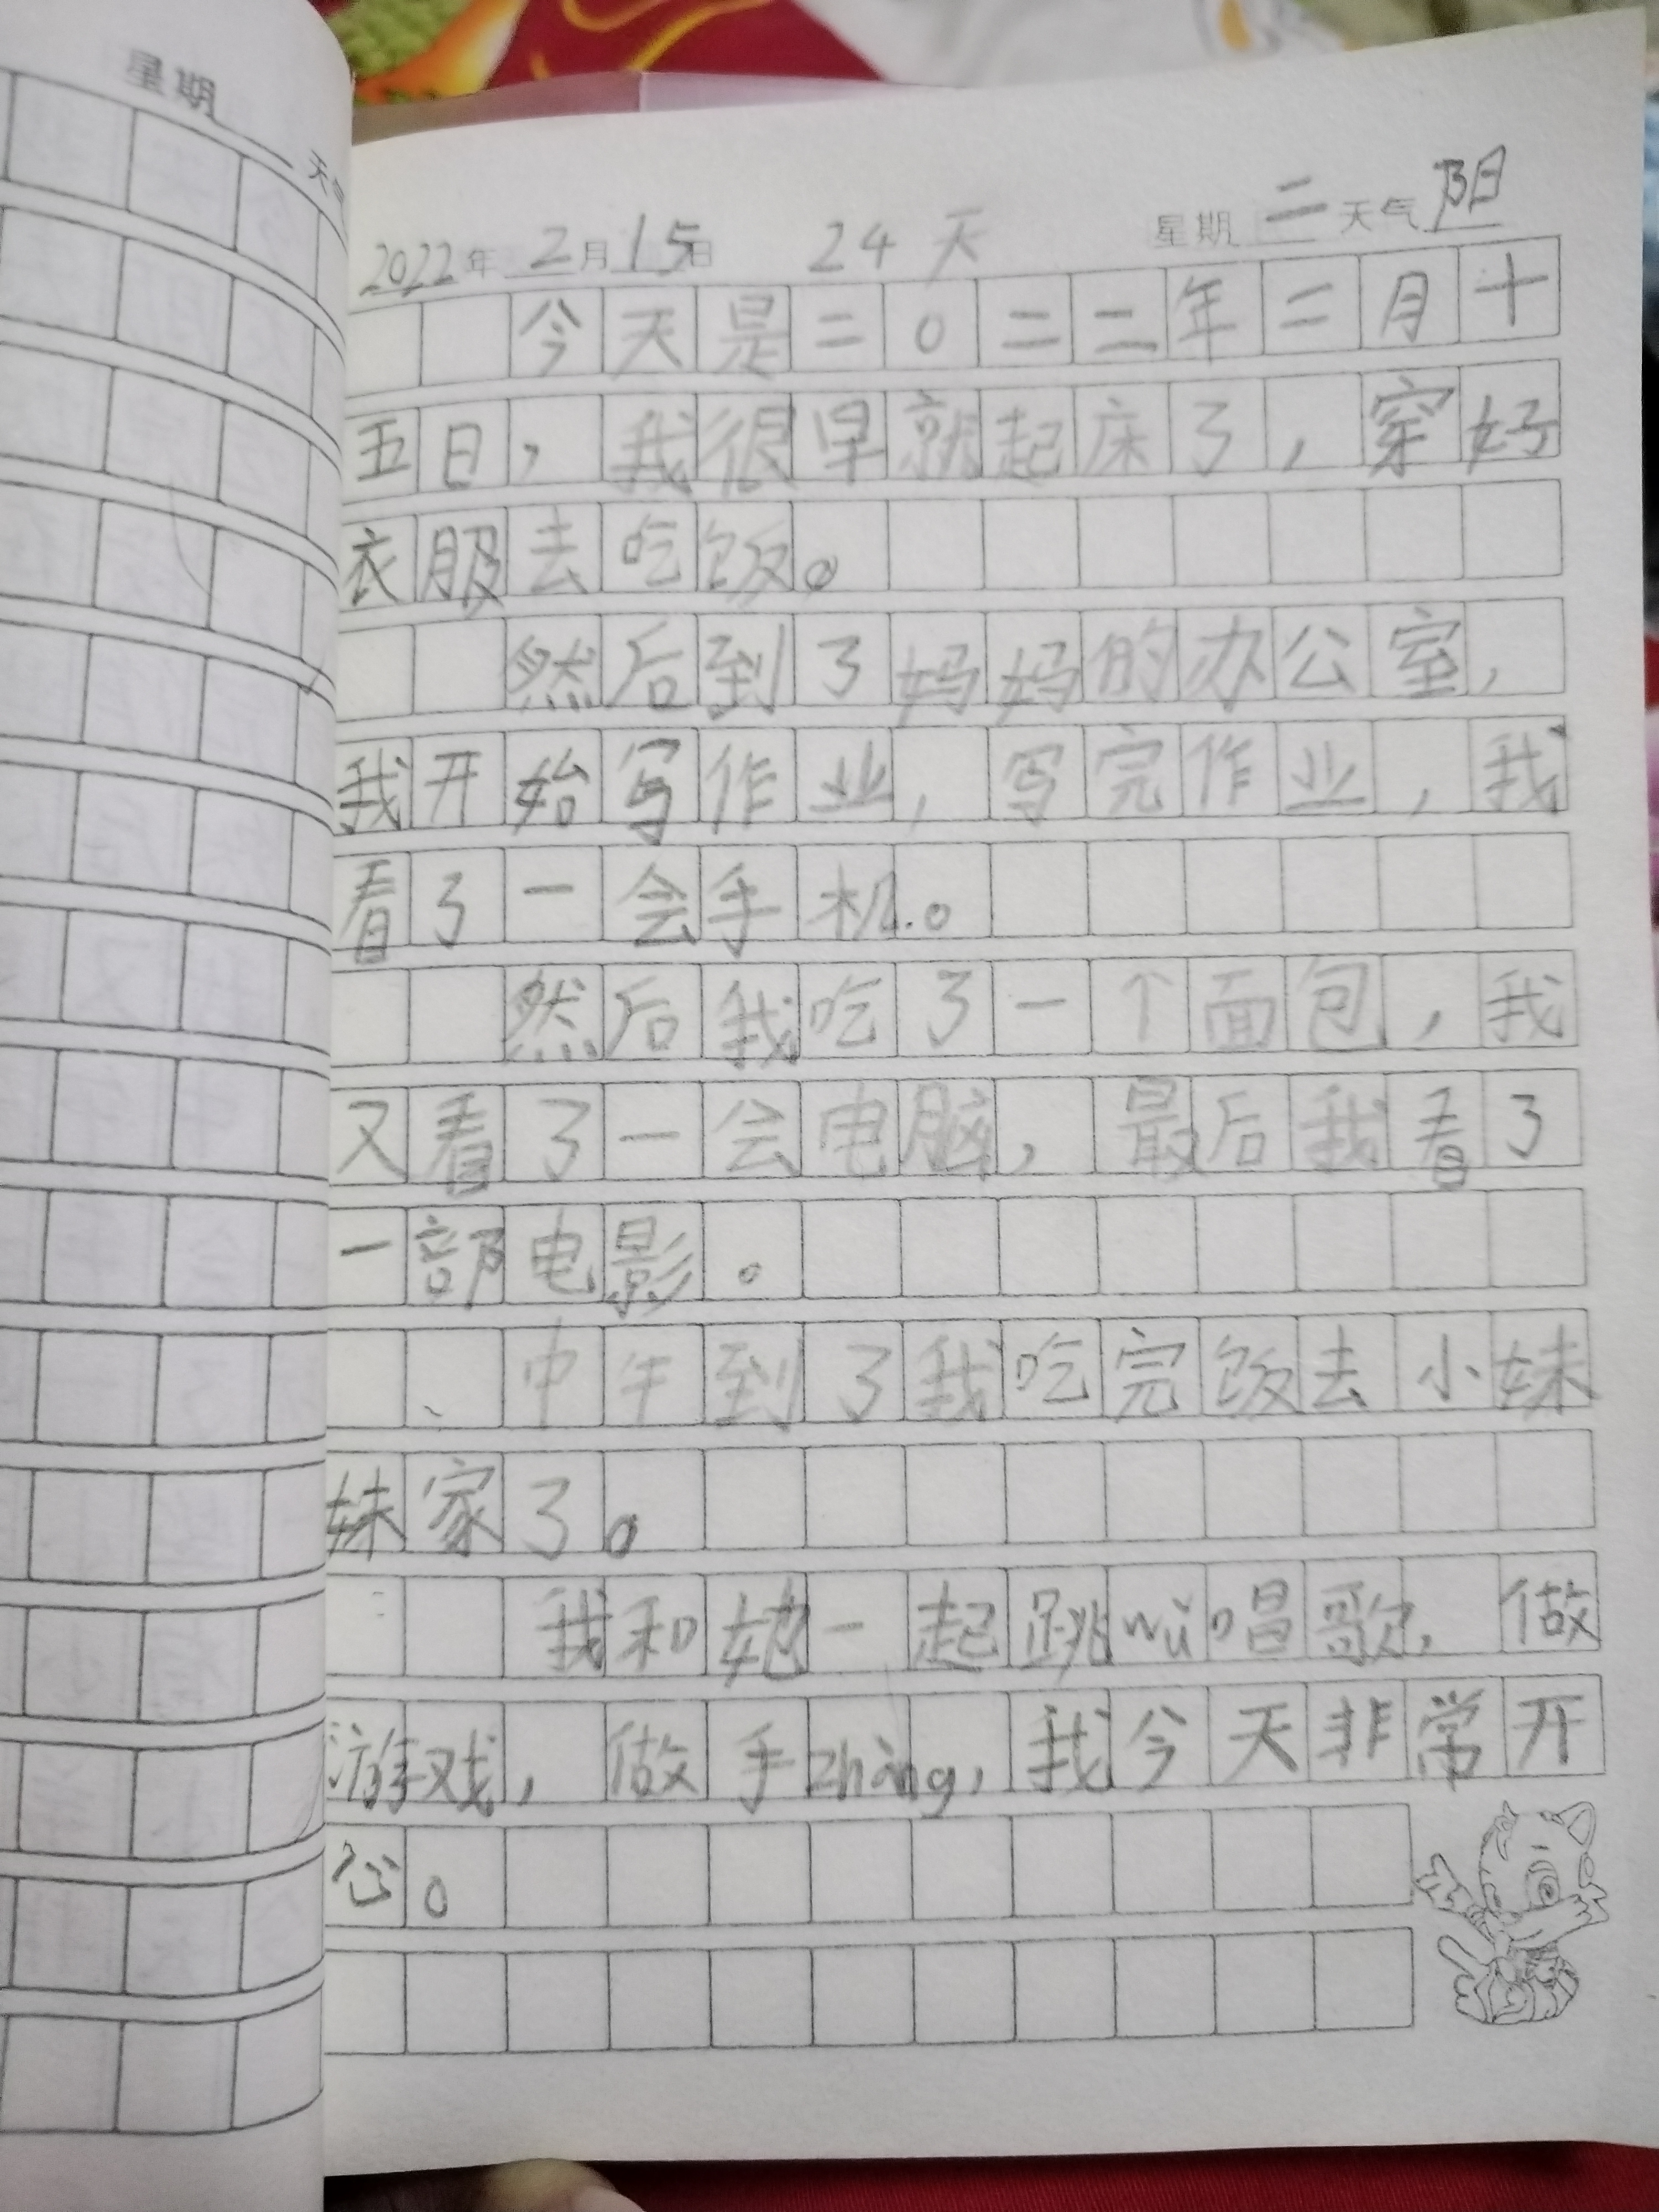 星期 天气
2022年 2月15日 24天 星期二天气阳
今天是二0二二年二月十
五日，我很早就起床了，穿好
衣服去吃饭。
然后到了妈妈的办公室，
我开始写作业，写完作业，我
看了一会手机。
然后我吃了一个面包，我
又看了一会电脑，最后我看了
一部电影。
中午到了我吃完饭去小妹
妹家了。
我和她一起跳wǔ唱歌，做
游戏，做手zhàng，我今天非常开
心。